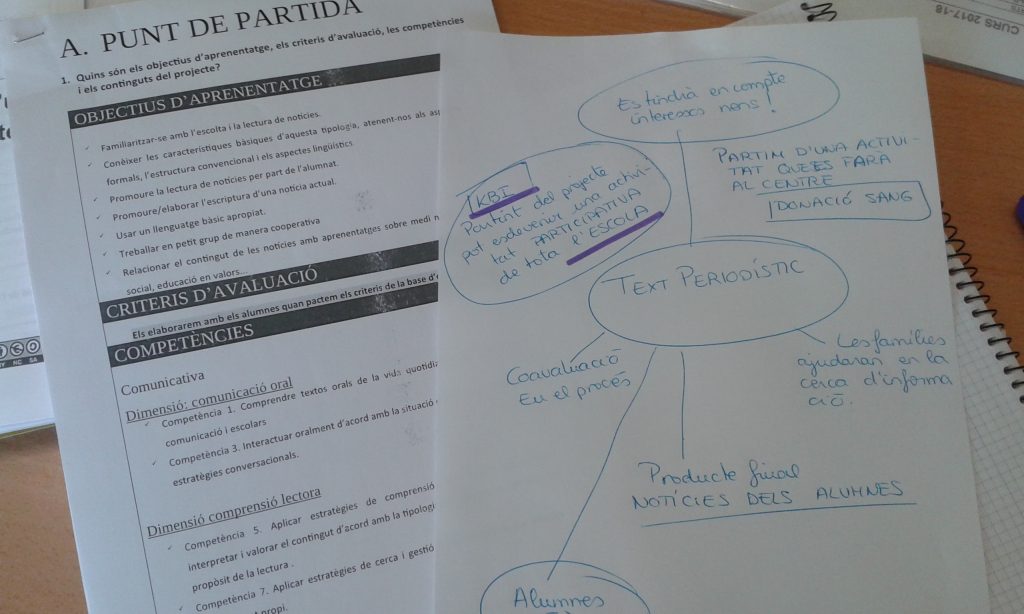 A. PUNT DE PARTIDA
1. Quins són els objectius d'aprenentatge, els criteris d'avaluació, les competències
i els continguts del projecte?
OBJECTIUS D'APRENENTATGE
Familiaritzar-se amb l'escolta i la lectura de notícies.
Conèixer les característiques bàsiques d'aquesta tipologia, atenent-nos als
formals, l'estructura convencional i els aspectes lingüístics
Promoure la lectura de notícies per part de l'alumnat.
Promoure/elaborar l'escriptura d'una notícia actual.
Usar un llenguatge bàsic apropiat.
Treballar en petit grup de manera cooperativa
Relacionar el contingut de les notícies amb aprenentatges sobre medi
social, educació en valors...
CRITERIS D'AVALUACIÓ
Els elaborarem amb els alumnes quan pactem els criteris de la base
COMPETÈNCIES
Comunicativa
Dimensió: comunicació oral
Competència 1. Comprendre textos orals de la vida
comunicació i escolars
Competència 3. Interactuar oralment d'acord amb la situació
estratègies conversacionals.
Dimensió comprensió lectora
Competència 5. Aplicar estratègies de comprensió
interpretar i valorar el contingut d'acord amb la
propòsit de la lectura .
Competència 7. Aplicar estratègies de cerca i gestió
propi.
Es tindrà en compte
interessos nens!
KBI
Partint del projecte
pot esdevenir una activi-
tat PARTICIPATIVA
de tota l'ESCOLA
PARTIM D'UNA ACTIVI-
TAT QUE ES FARA
AL CENTRE
DONACIÓ SANG
TEXT PERIODÍSTIC
Coavaluació
En el procés
Les famílies
ajudaran en la
cerca d'informa
ció.
Producte final
NOTÍCIES DELS ALUMNES
Alumnes
CURS 2017-18
NC SA